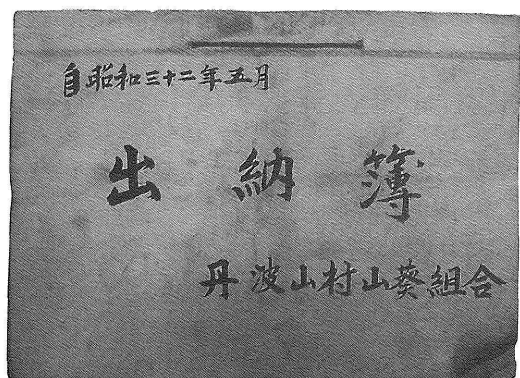 自昭和三十二年五月
出納簿
丹波山村山葵組合